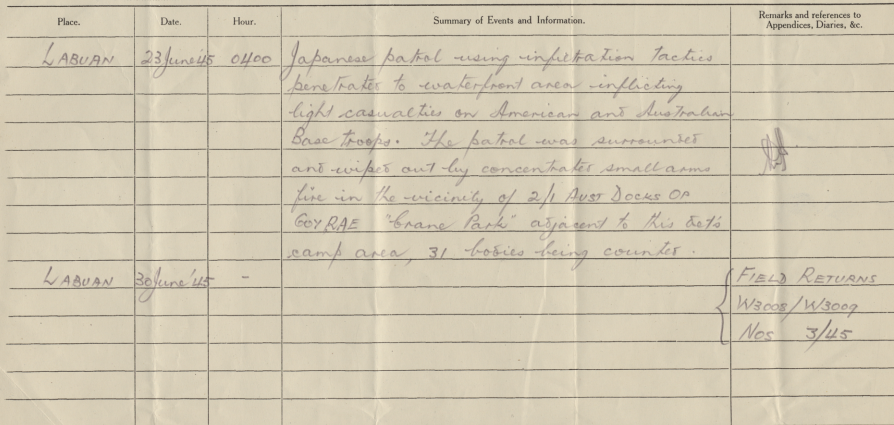 Place. Date. Hour. Summary of Events and Information. Remarks and references to
Appendices, Diaries, &c.
LABUAN 23 June '45 0400 Japanese patrol using infiltration tactics
penetrated to waterfront area inflicting
light casualties on American and Australian
Base troops. The patrol was surrounded
and wiped out by concentrated small arms
fire in the vicinity of 2/1 AUST DOCKS OP
COY RAE "Crane Park" adjacent to this det's
camp area, 31 bodies being counted.
LABUAN 30 June '45 - FIELD RETURNS
W3008/W3009
Nos 3/45